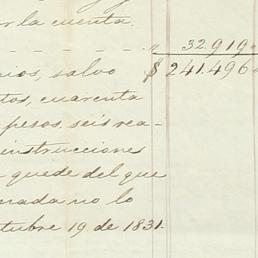 r la cuenta.
32.919
ios, salvo $ 241.496
tos, cuarenta
pesos, seis rea-
instrucciones
quede del que
mada no lo
tubre 19 de 1831.